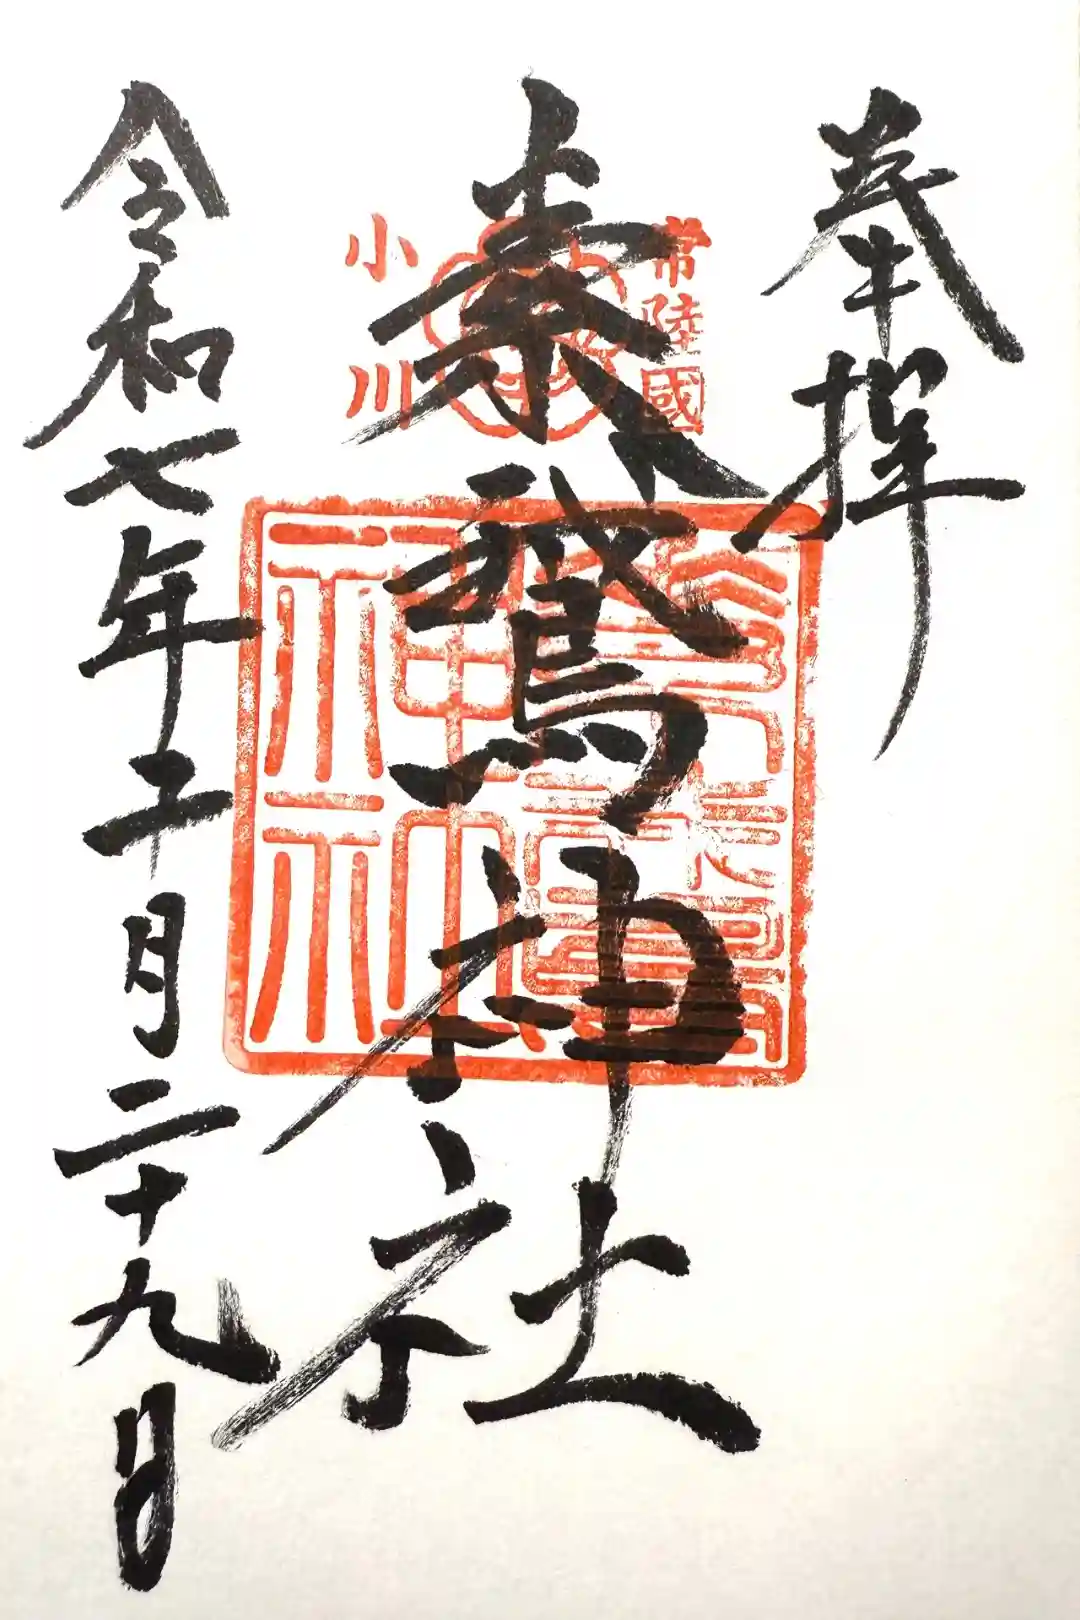 奉拝
常陸國
素鵞神社
小川
令和七年五月二十九日